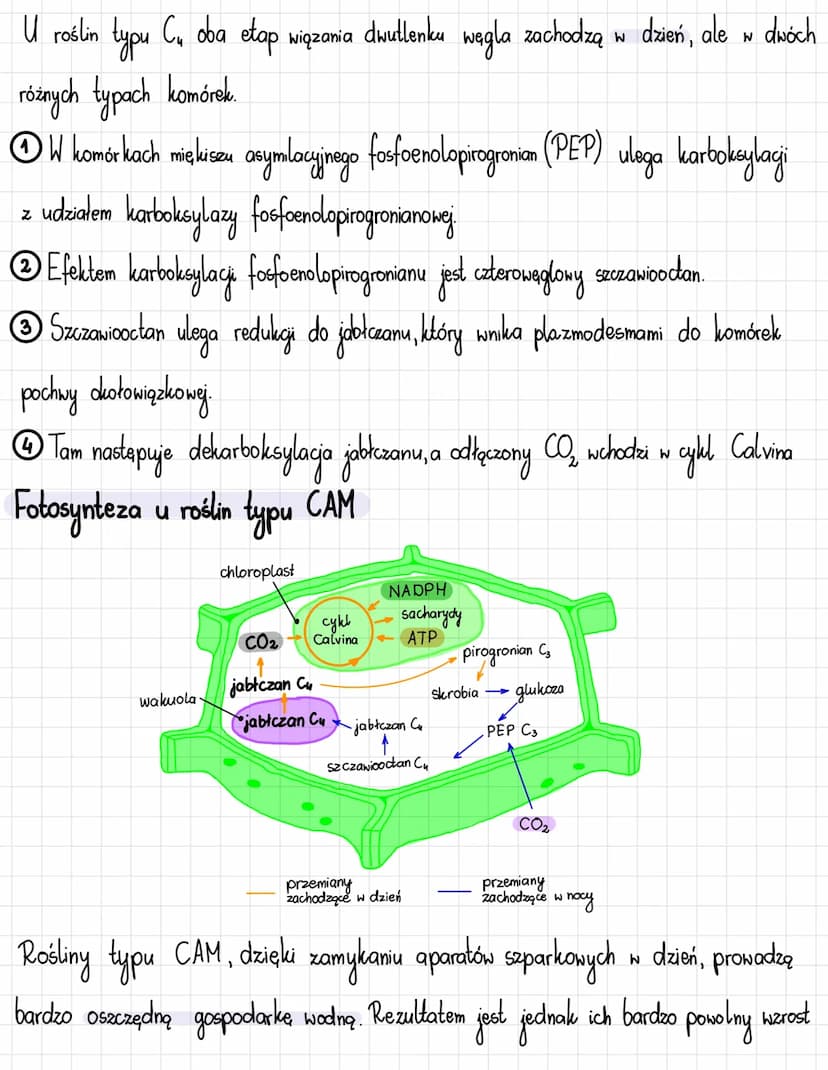 U roślin typu C₄ oba etap wiązania dwutlenku węgla zachodzą w dzień, ale w dwóch
różnych typach komórek.
① W komórkach miękiszu asymilacyjnego fosfoenolopirogronian (PEP) ulega karboksylacji
z udziałem karboksylazy fosfoenolopirogronianowej.
② Efektem karboksylacji fosfoenolopirogronianu jest czterowęglowy szczawiooctan.
③ Szczawiooctan ulega redukcji do jabłczanu, który wnika plazmodesmami do komórek
pochwy okołowiązkowej.
④ Tam następuje dekarboksylacja jabłczanu, a odłączony CO₂ wchodzi w cykl Calvina
Fotosynteza u roślin typu CAM
chloroplast
NADPH
cykl
Calvina
sacharydy
ATP
CO₂
pirogronian C₃
jabłczan C₄
skrobia
glukoza
wakuola
jabłczan C₄
jabłczan C₄
PEP C₃
szczawiooctan C₄
CO₂
przemiany
zachodzące w dzień
przemiany
zachodzące w nocy
Rośliny typu CAM, dzięki zamykaniu aparatów szparkowych w dzień, prowadzą
bardzo oszczędną gospodarkę wodną. Rezultatem jest jednak ich bardzo powolny wzrost